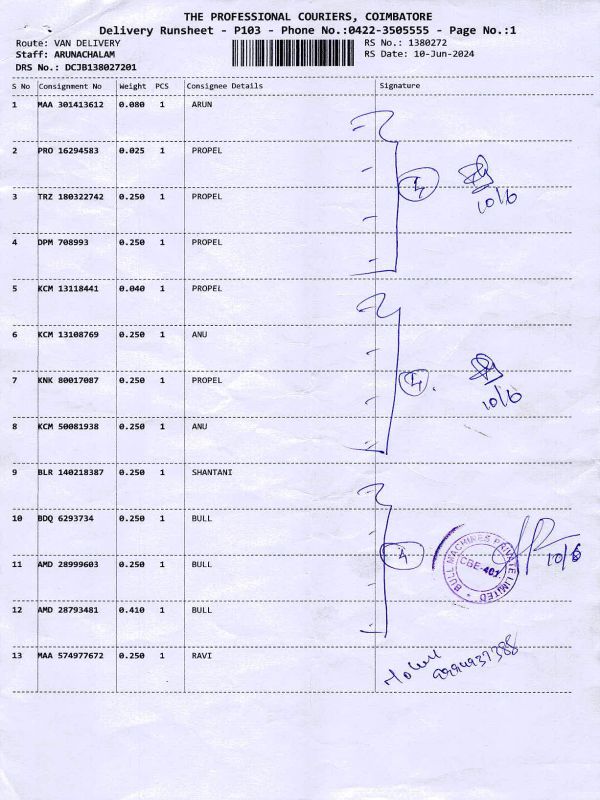 THE PROFESSIONAL COURIERS, COIMBATORE
Delivery Runsheet - P103 - Phone No.:0422-3505555 - Page No.:1
Route: VAN DELIVERY RS No.: 1380272
Staff: ARUNACHALAM RS Date: 10-Jun-2024
DRS No.: DCJB138027201
S No Consignment No Weight PCS Consignee Details Signature
1 MAA 301413612 0.080 1 ARUN
2 PRO 16294583 0.025 1 PROPEL
3 TRZ 180322742 0.250 1 PROPEL
4
10/6
4 DPM 708993 0.250 1 PROPEL
5 KCM 13118441 0.040 1 PROPEL
6 KCM 13108769 0.250 1 ANU
7 KNK 80017087 0.250 1 PROPEL
4
10/6
8 KCM 50081938 0.250 1 ANU
9 BLR 140218387 0.250 1 SHANTANI
10 BDQ 6293734 0.250 1 BULL
4
10/6
BULL MACHINES PRIVATE LIMITED
CBE-401.
11 AMD 28999603 0.250 1 BULL
12 AMD 28793481 0.410 1 BULL
13 MAA 574977672 0.250 1 RAVI